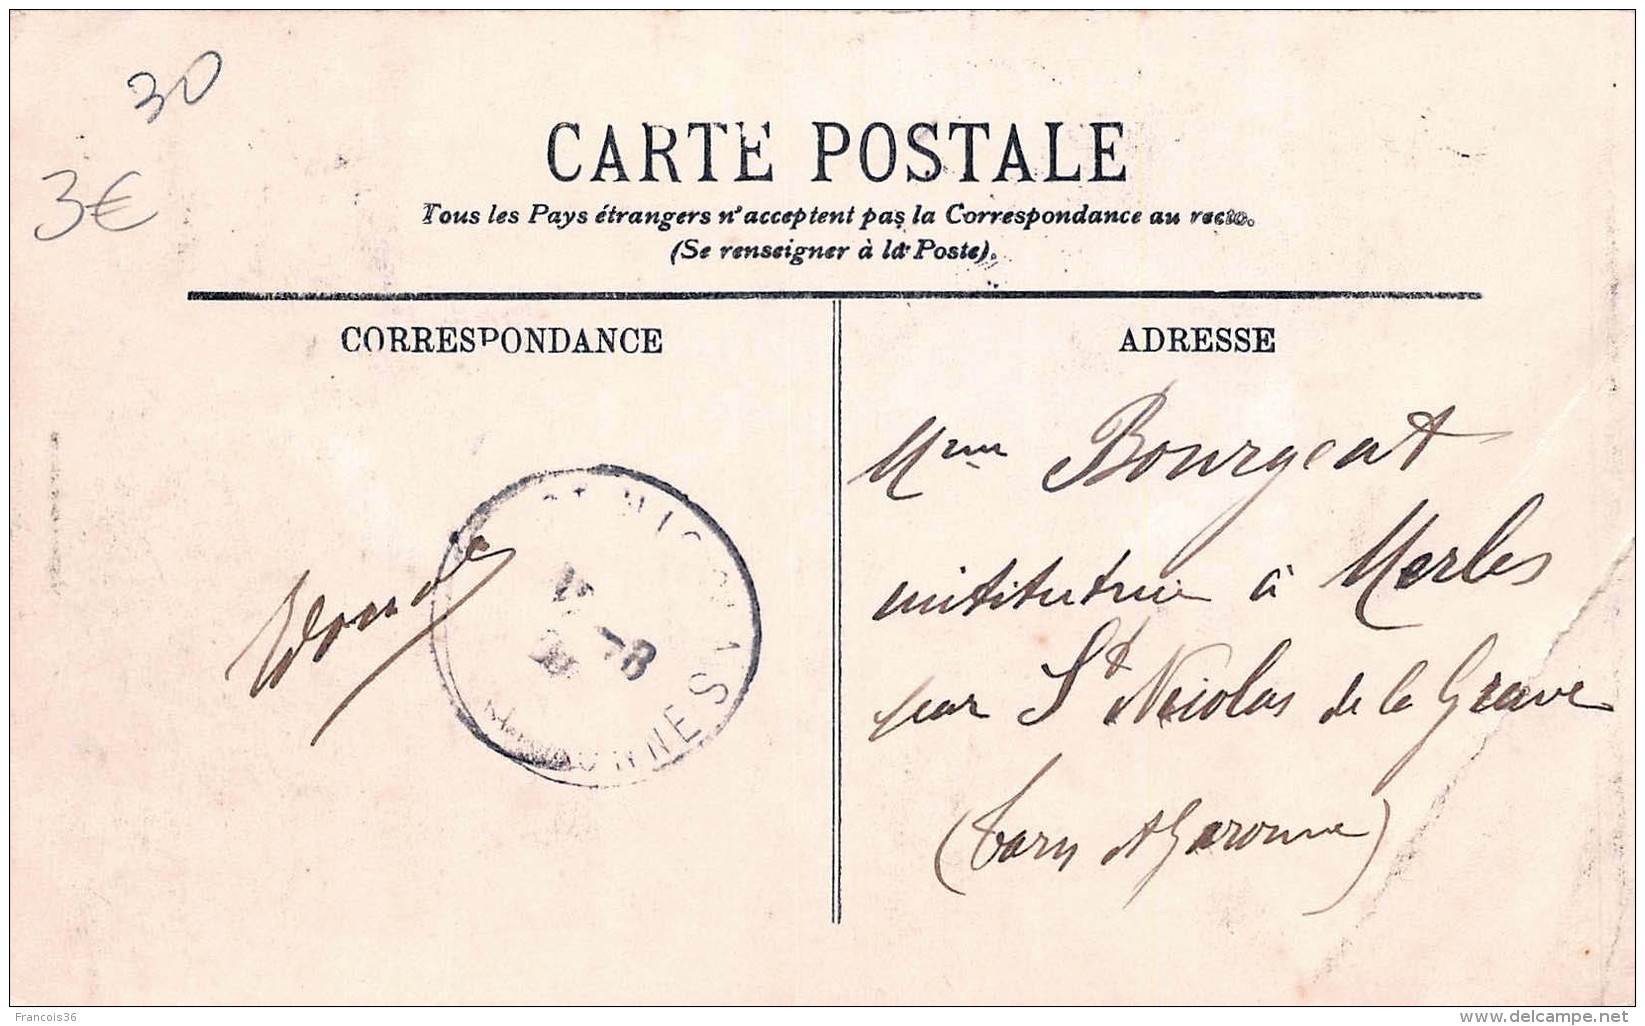 30
3€
CARTE POSTALE
Tous les Pays étrangers n'acceptent pas la Correspondance au recto.
(Se renseigner à la Poste).
CORRESPONDANCE
ADRESSE
Mme Bourgeat
institutrice à Merles
par St Nicolas de la Grave
(Tarn et Garonne)
-8
Francois36
delcampe.net